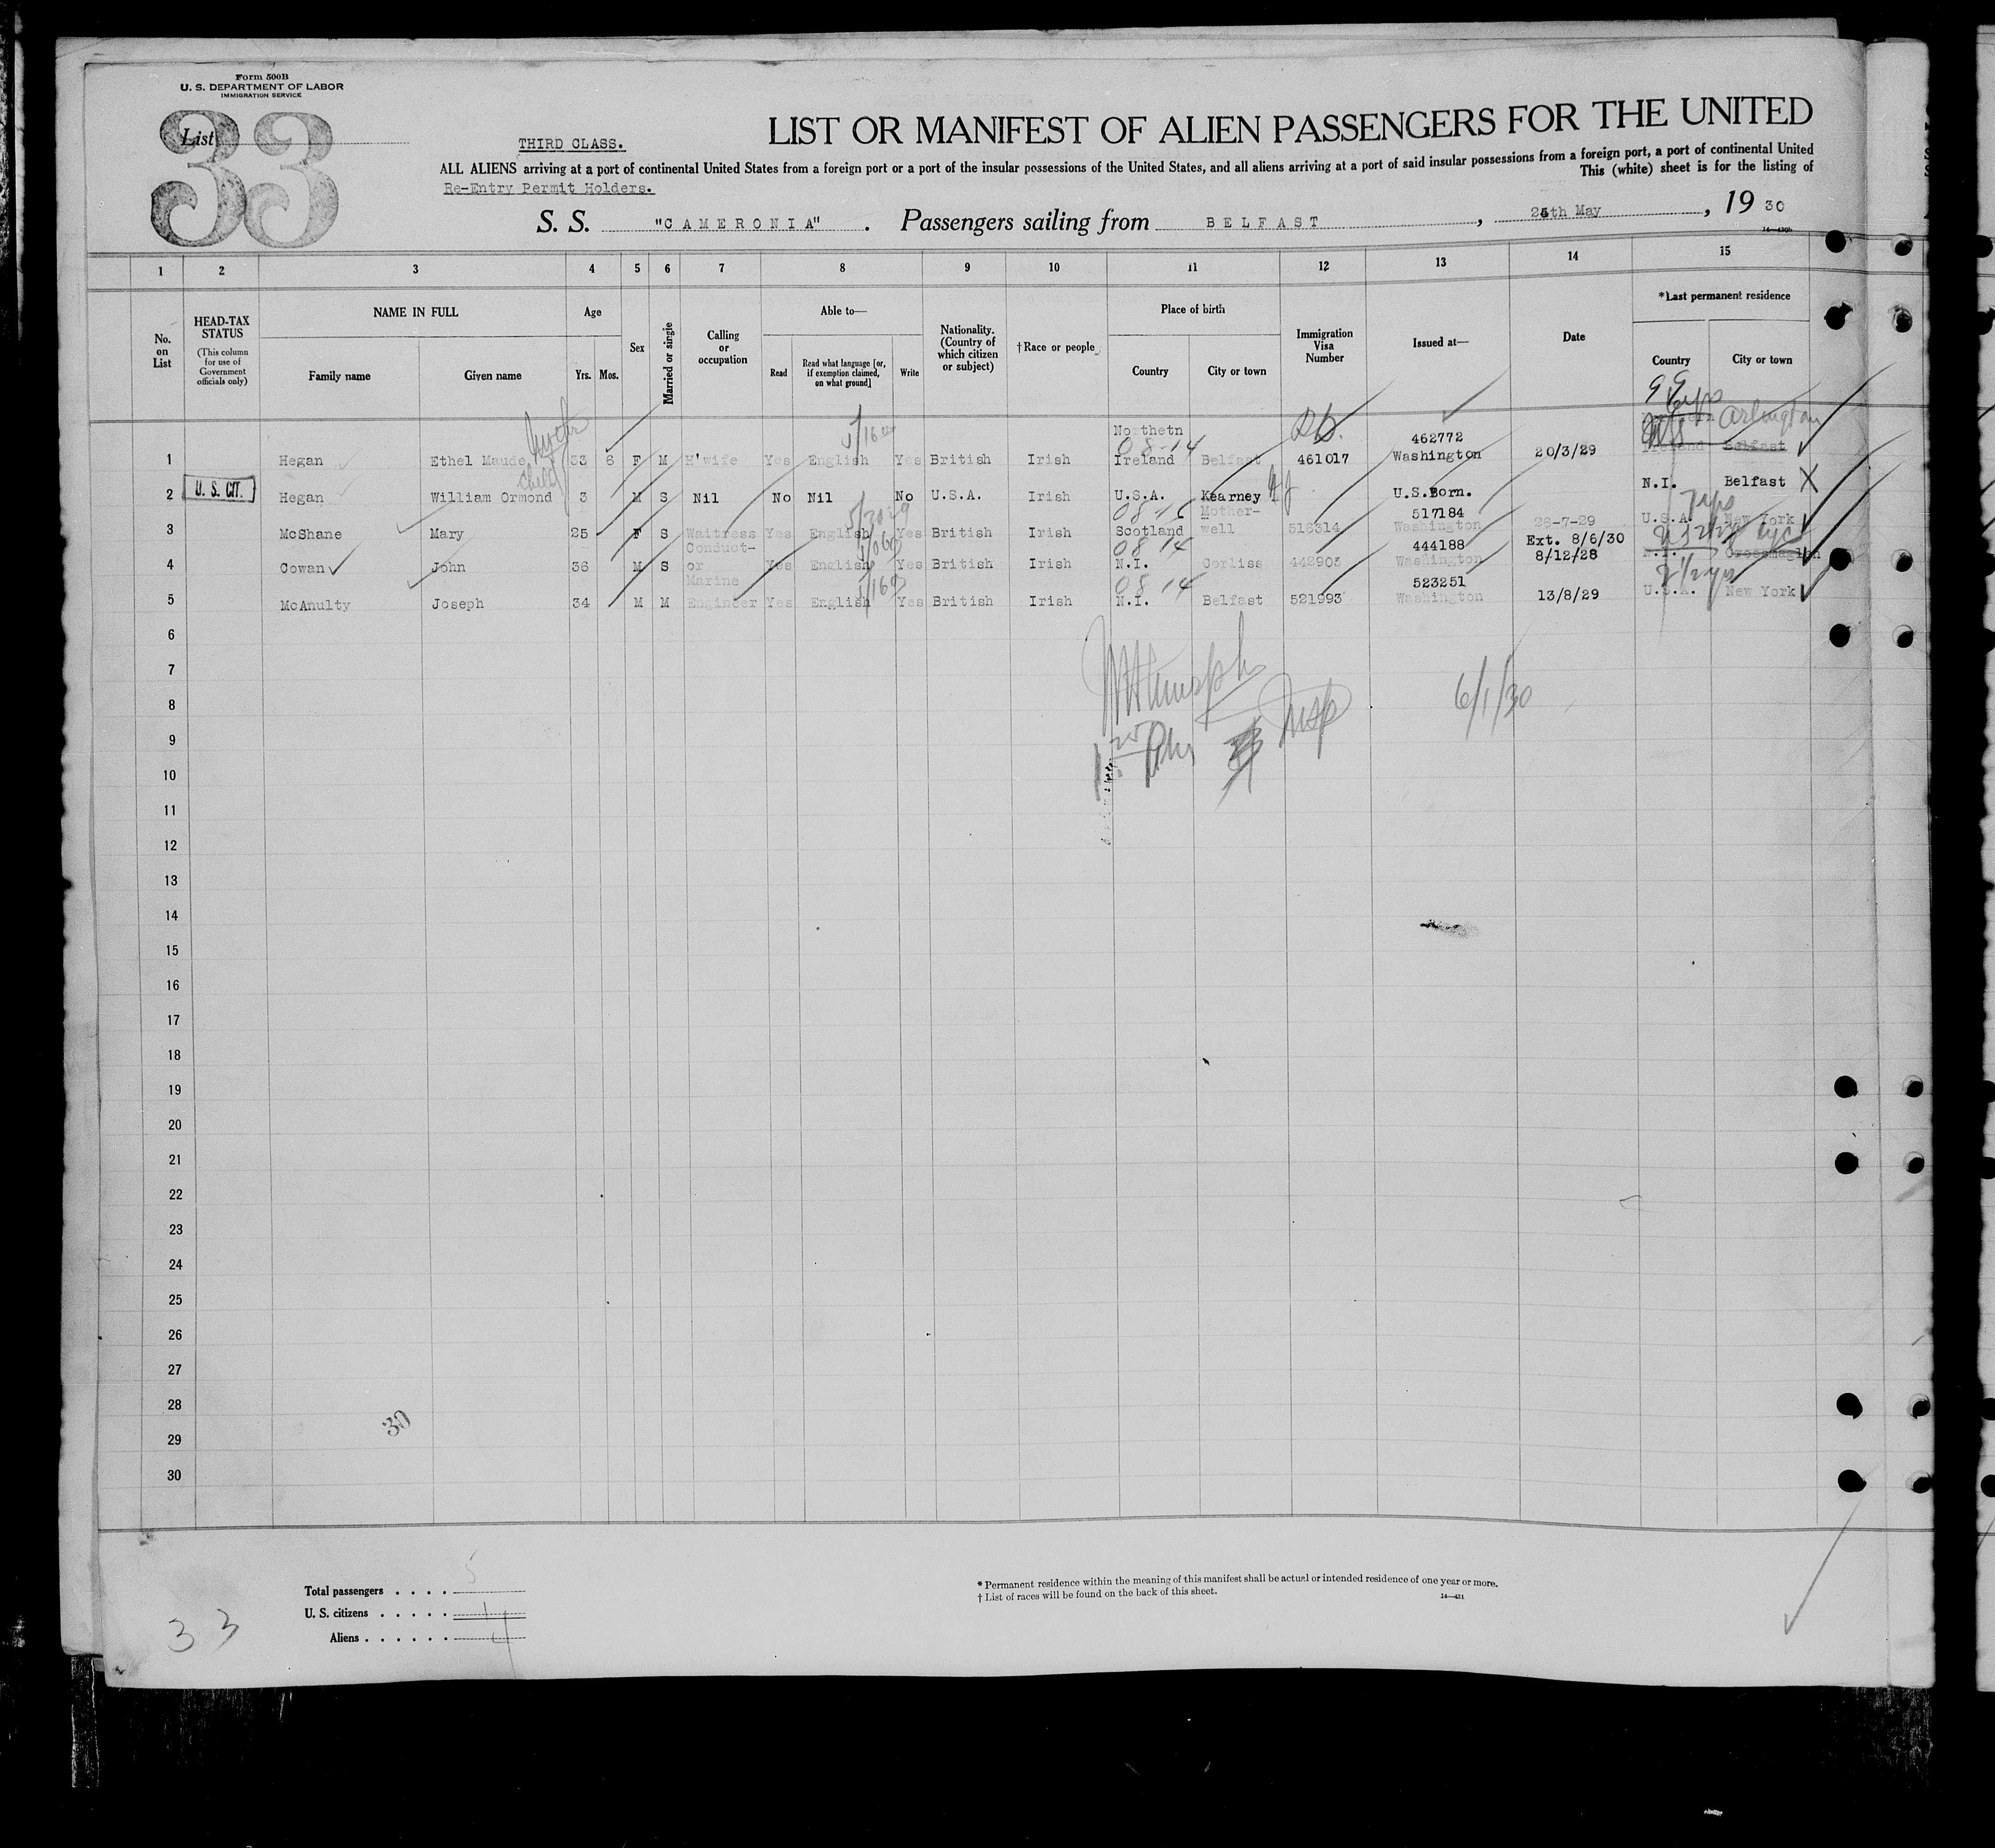 Form 500B
U. S. DEPARTMENT OF LABOR
IMMIGRATION SERVICE
List
33
THIRD CLASS.
LIST OR MANIFEST OF ALIEN PASSENGERS FOR THE UNITED
ALL ALIENS arriving at a port of continental United States from a foreign port or a port of the insular possessions of the United States, and all aliens arriving at a port of said insular possessions from a foreign port, a port of continental United
This (white) sheet is for the listing of
Re-Entry Permit Holders.
S. S. "CAMERONIA". Passengers sailing from BELFAST, 25th May, 19 30
1 2 3 4 5 6 7 8 9 10 11 12 13 14 15
No. on List
HEAD-TAX STATUS (This column for use of Government officials only)
NAME IN FULL
Family name Given name
Age
Yrs. Mos.
Sex
Married or single
Calling or occupation
Able to—
Read
Read what language [or, if exemption claimed, on what ground]
Write
Nationality. (Country of which citizen or subject)
†Race or people
Place of birth
Country City or town
Immigration Visa Number
Issued at—
Date
*Last permanent residence
Country City or town
1 Hegan Ethel Maude 33 6 F M H'wife Yes English Yes British Irish Northetn Ireland Belfast 461017 462772 Washington 20/3/29 Ireland Belfast Arlington
2 U. S. CIT. Hegan William Ormond child 3 M S Nil No Nil No U.S.A. Irish U.S.A. Kearney NJ U.S.Born. N.I. Belfast X
3 McShane Mary 25 F S Waitress Yes English Yes British Irish Scotland Mother-well 518314 517184 Washington 28-7-29 U.S.A. New York 7 yrs
4 Cowan John 36 M S Conduct-or Yes English Yes British Irish 08 14 N.I. Corliss 442903 444188 Washington Ext. 8/6/30 8/12/28 N.I. Crossmaglen
5 McAnulty Joseph 34 M M Marine Engineer Yes English Yes British Irish 08 14 N.I. Belfast 521993 523251 Washington 13/8/29 U.S.A. New York
6
7
8 6/1/30
Insp
9
10
11
12
13
14
15
16
17
18
19
20
21
22
23
24
25
26
27
28
30
29
30
Total passengers . . . . 5
U. S. citizens . . . . . 1
Aliens . . . . . . 4
33
* Permanent residence within the meaning of this manifest shall be actual or intended residence of one year or more.
† List of races will be found on the back of this sheet.
14—431